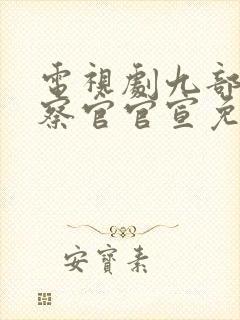 電視劇九部
察官官宣免
安寶素